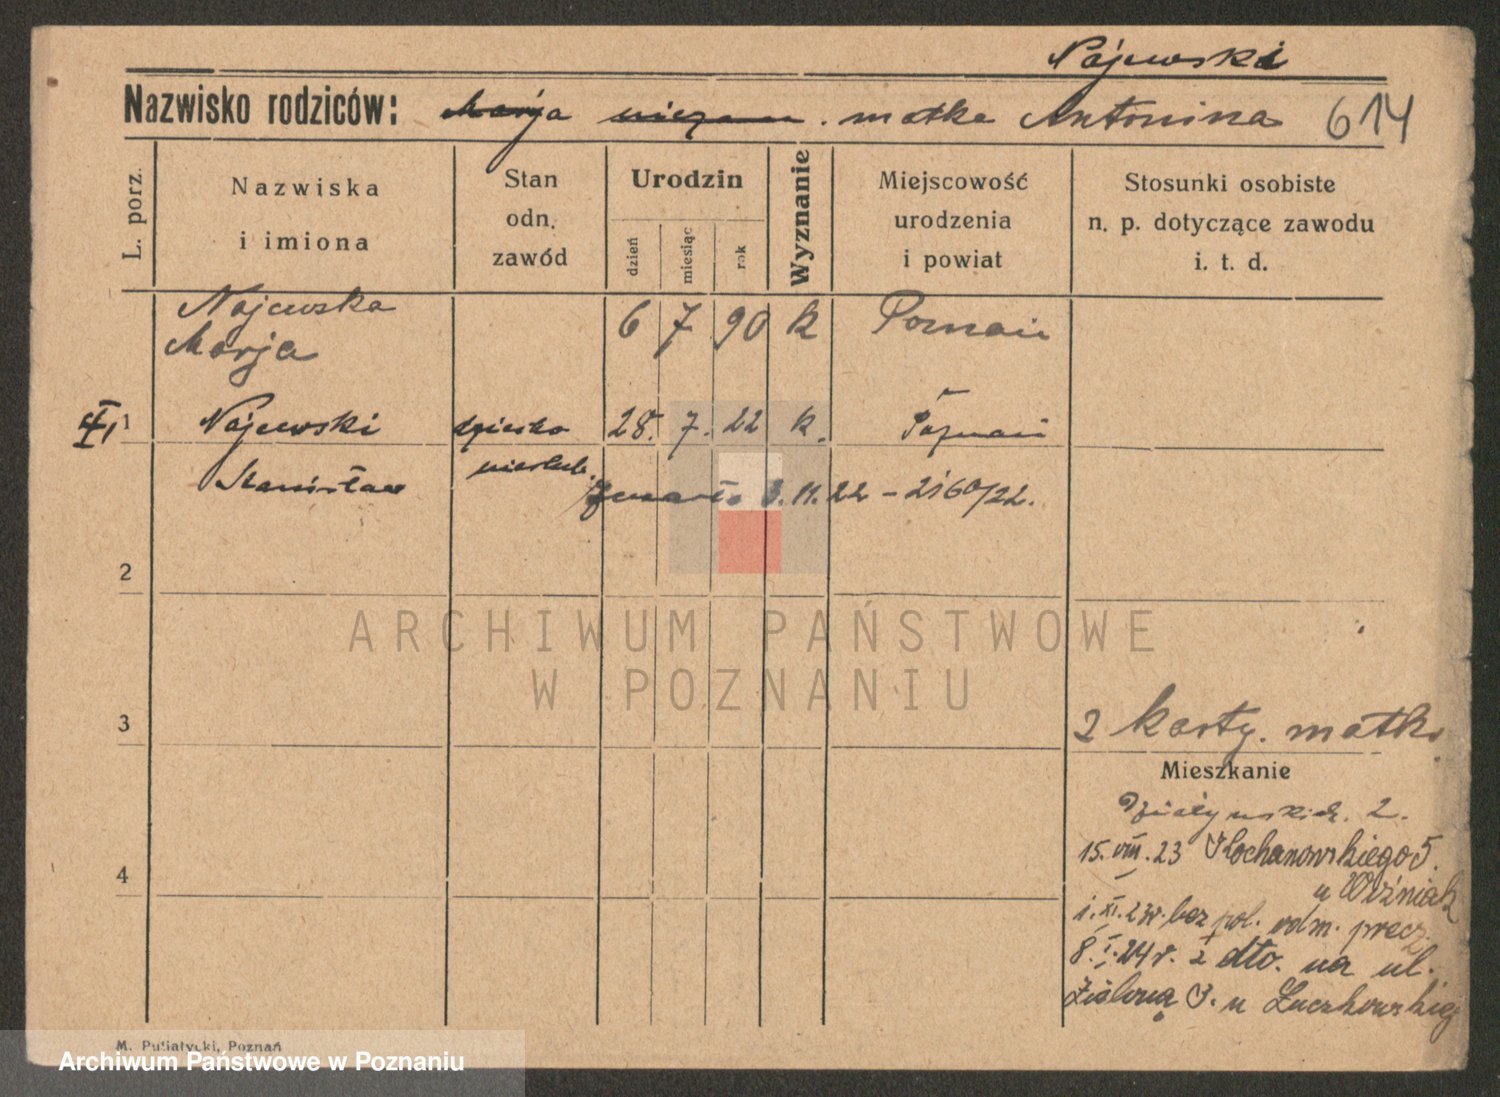 Najewski
Nazwisko rodziców: Marja matka Antonina 614
L. porz.
Nazwiska
i imiona
Stan
odn.
zawód
Urodzin
dzień
miesiąc
rok
Wyznanie
Miejscowość
urodzenia
i powiat
Stosunki osobiste
n. p. dotyczące zawodu
i. t. d.
Najewska 6 7 90 k Poznań
Marja
1 Najewski dziecko 28. 7. 22 k. Poznań
Stanisław nieślub.
zmarło 3.11.22 - 2160/22.
2
3
2 karty. matka
Mieszkanie
Działyńskich. 2.
15. VIII. 23 Kochanowskiego 5.
u Woźniak
1. XI. 23r. bez pol. odm. przez
8. I. 24 r. z dto. na ul.
Zieloną 3. u Łuczkowskiej
4
M. Putiatycki, Poznań
ARCHIWUM PAŃSTWOWE
W POZNANIU
Archiwum Państwowe w Poznaniu